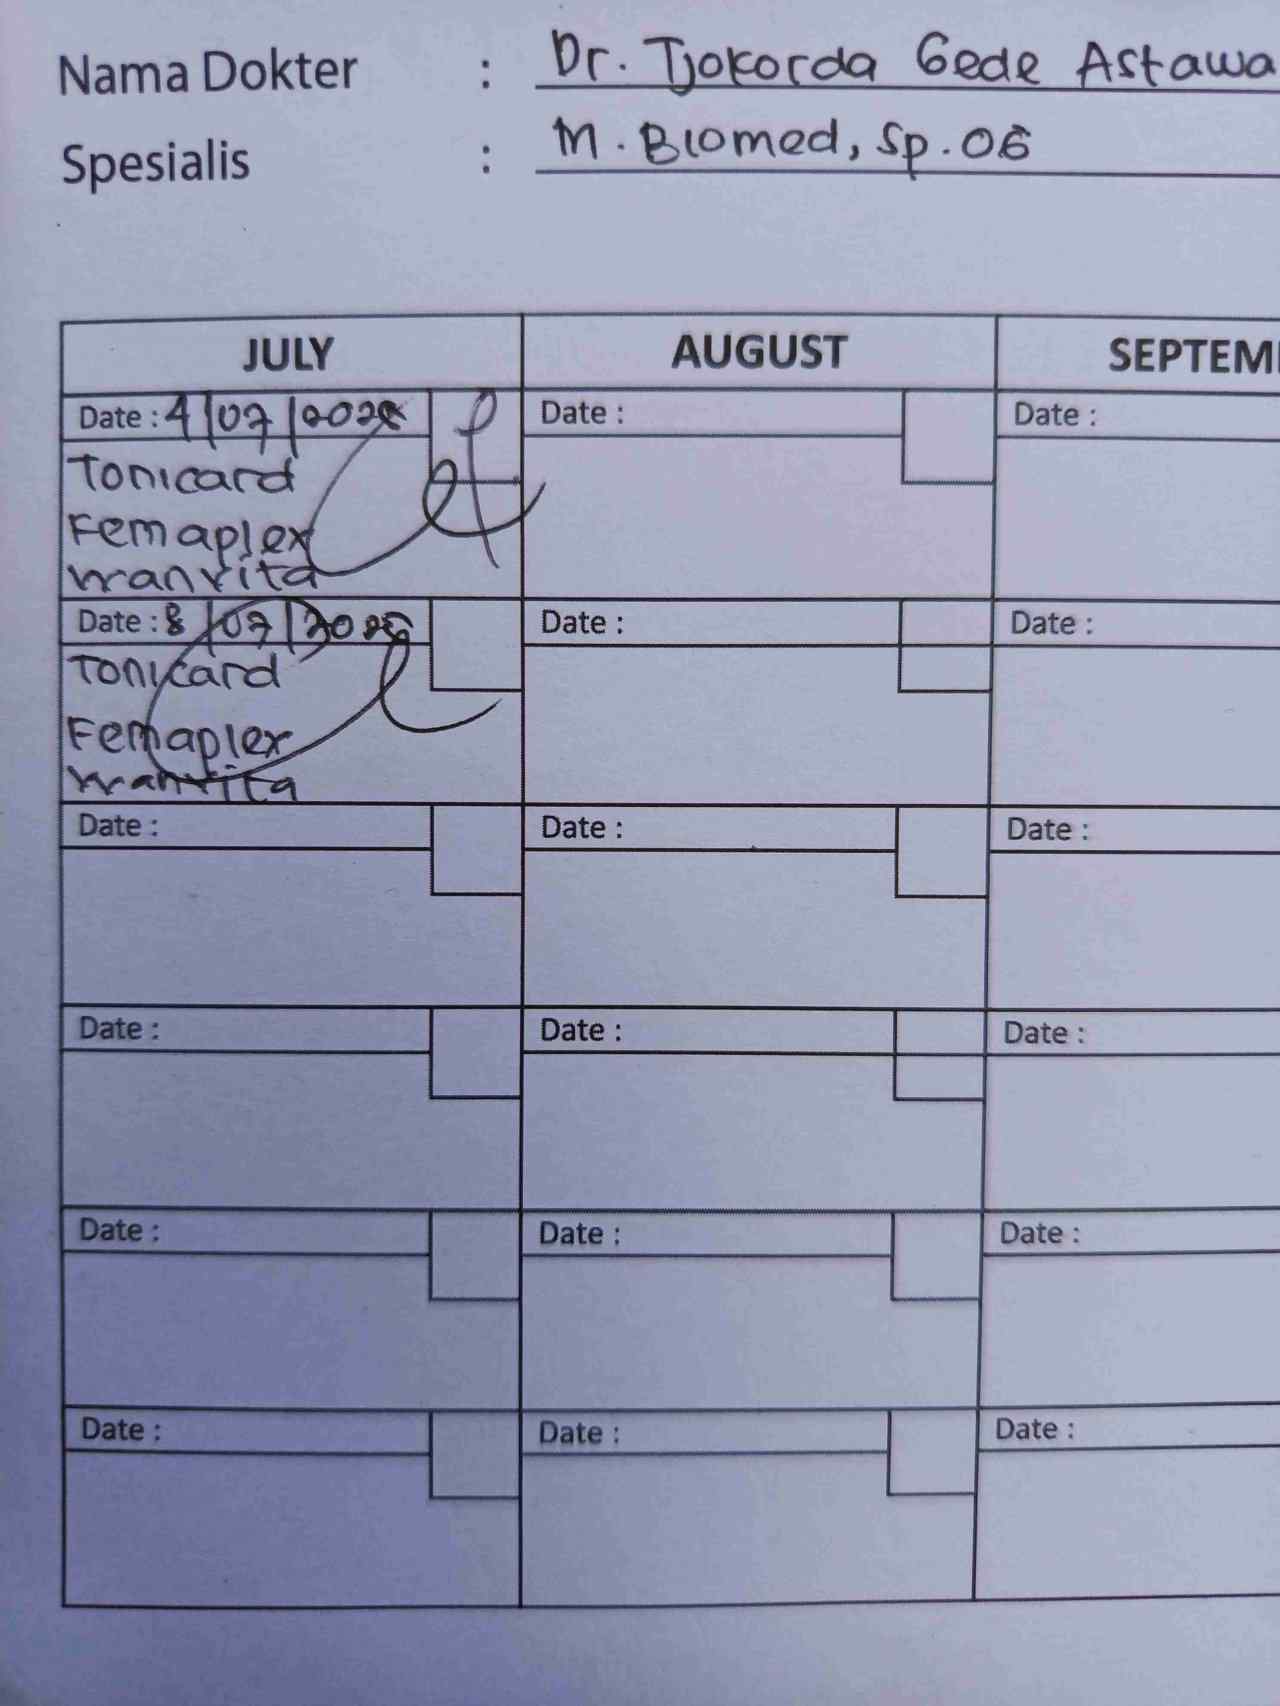 Nama Dokter : Dr. Tjokorda Gede Astawa
Spesialis : M. Biomed, Sp.OG
JULY AUGUST SEPTEM
Date : 4/07/2025 Date : Date :
Tonicard
Femaplex
wanvita
Date : 8/07/2025 Date : Date :
Tonicard
Femaplex
wanvita
Date : Date : Date :
Date : Date : Date :
Date : Date : Date :
Date : Date : Date :